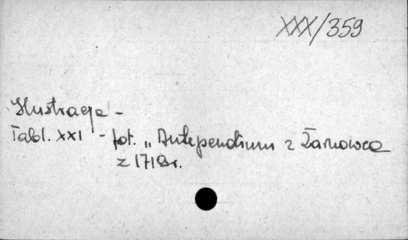 XXX/359
Ilustracje -
Tabl. XXI - fot. „Antependium z Żarnowca
z 1718r.